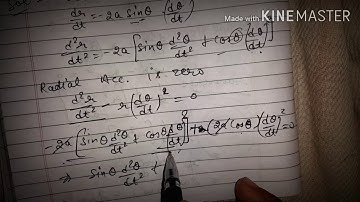 Made with KINEMASTER
dr/dt = -2a sinθ (dθ/dt)
d²r/dt² = -2a [sinθ d²θ/dt² + cosθ (dθ/dt)²]
Radial Acc. is zero
d²r/dt² - r(dθ/dt)² = 0
-2a [sinθ d²θ/dt² + cosθ (dθ/dt)²] - (2a cosθ)(dθ/dt)² = 0
⇒ sinθ d²θ/dt² +